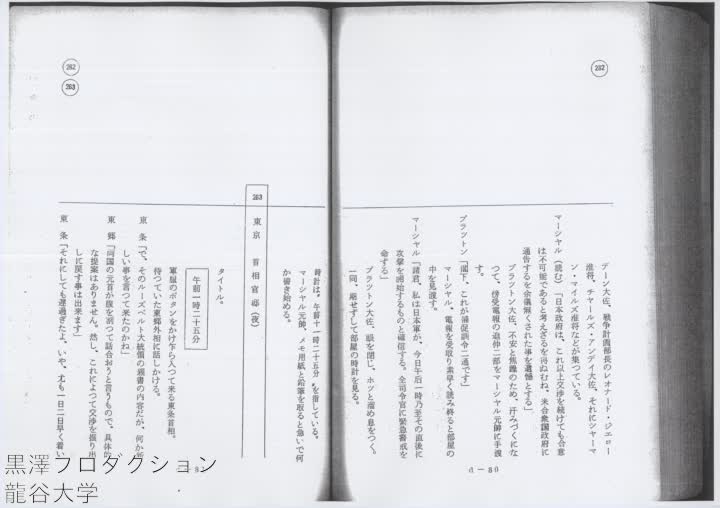 282
デーン大佐、戦争計画部長のレオナード・ジェロー
准将、チャールズ・アンデイ大佐、それにシャーマ
ン・マイルズ准将などが集つている。
マーシャル(読む)「日本政府は、これ以上交渉を続けても合意
は不可能であると考えざるを得ぬむね、米合衆国政府に
通告するを余儀無くされた事を遺憾とする」
ブラットン大佐、不安と焦躁のため、汗みづくにな
つて、傍受電報の追伸二部をマーシャル元帥に手渡
す。
ブラツトン「閣下、これが補促訓令二通です」
マーシャル、電報を受取り素早く読み終ると部屋の
中を見渡す。
マーシャル「諸君、私は日本軍が、今日午后一時乃至その直後に
攻撃を開始するものと確信する。全司令官に緊急警戒を
命ずる」
ブラットン大佐、眼を閉じ、ホッと溜め息をつく。
一同、期せずして部屋の時計を見る。
d-80
282
283
時計は。午前十一時二十五分を指している。
マーシャル元帥、メモ用紙と鉛筆を取ると急いで何
か書き始める。
283 東京 首相官邸(夜)
タイトル。
午前一時二十五分
軍服のボタンをかけ乍ら入つて来る東条首相。
待つていた東郷外相に話しかける。
東条「で、そのルーズベルト大統領の親書の内容だが、何か新
しい事を言つて来たのかね」
東郷「両国の元首が腹を割つて話合おうと言うもので、具体的
な提案はありません。然し、これによつて交渉を振り出
しに戻す事は出来ます」
東条「それにしても遅過ぎたよ、いや、尤も一日二日早く着い
黒澤プロダクション
龍谷大学